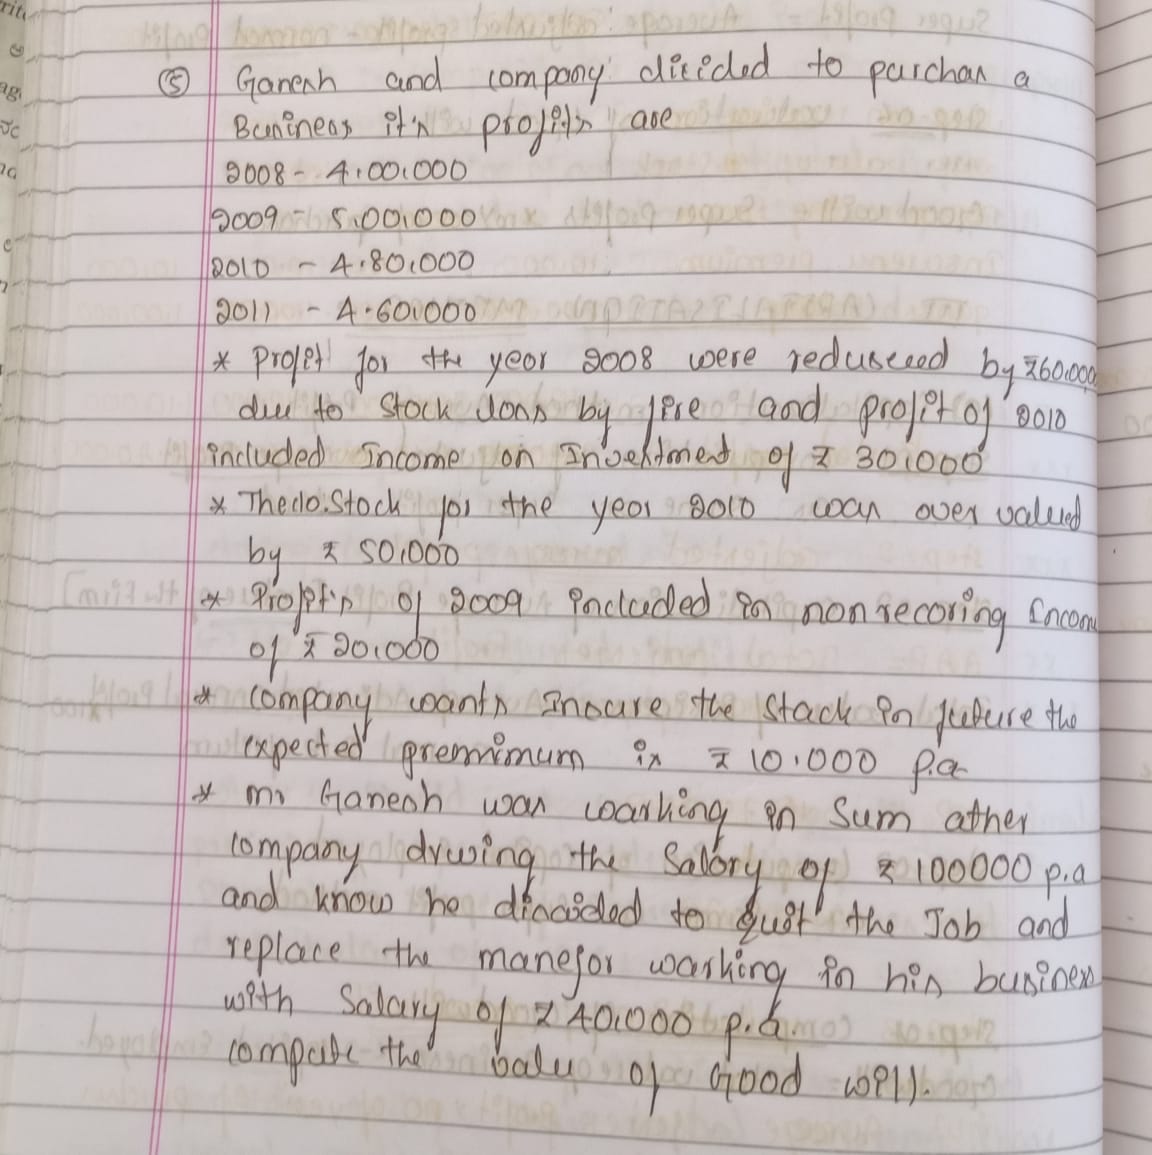 ⑤ Ganesh and company decided to purchas a
Business it's profits are
2008 - 4,00,000
2009 - 5,00,000
2010 - 4,80,000
2011 - 4,60,000
* Profit for the year 2008 were reduseed by ₹60,000
due to stock loss by fire and profit of 2010
included Income on Investment of ₹ 30,000
* The clo. Stock for the year 2010 was over valued
by ₹ 50,000
* Profit's of 2009 included in non recoring Incom
of ₹ 20,000
* company wants Insure the Stack in future the
expected premimum is ₹ 10,000 p.a
* mr Ganesh was woarking in Sum ather
company drwing the Salory of ₹ 100000 p.a
and know he dincided to quit the Job and
replace the manejor warking in his busines
with Salary of ₹ 40,000 p.a.
compute the valu of Good will.